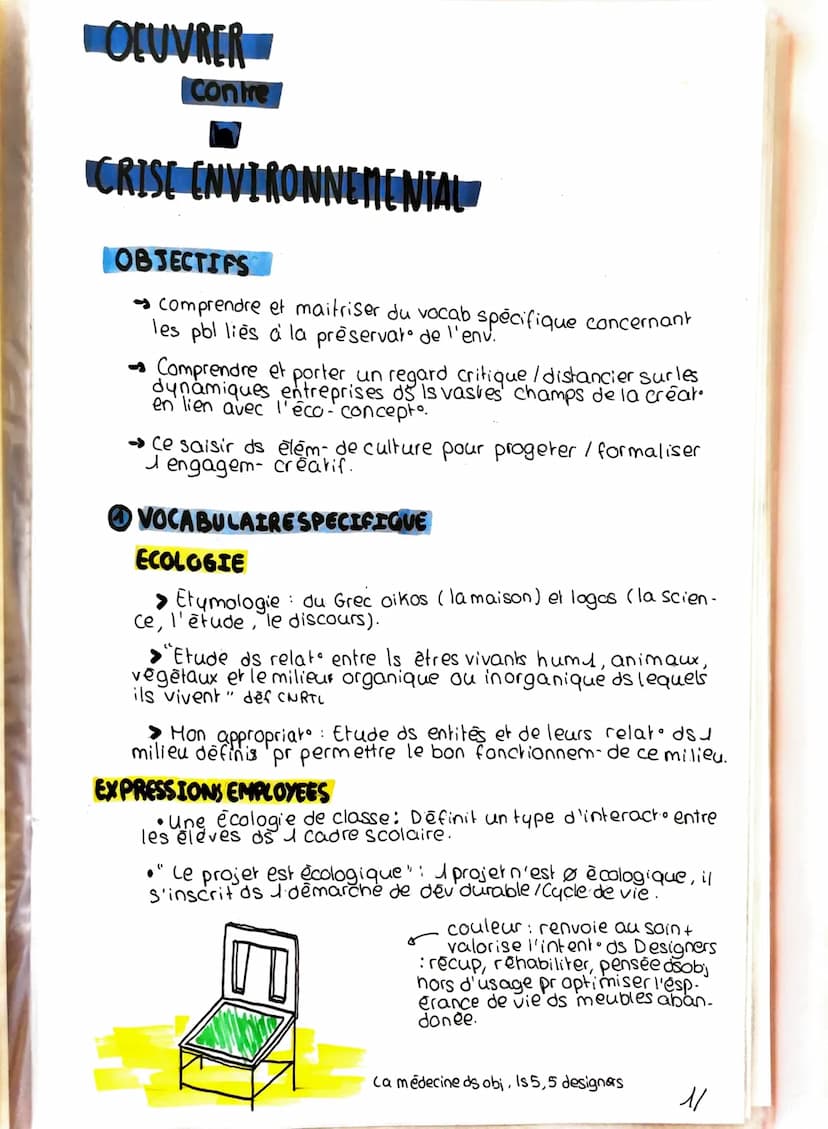 OEUVRER
contre
la
CRISE ENVIRONNEMENTAL
OBJECTIFS
→ comprendre et maitriser du vocab spécifique concernant
les pbl liés à la préservat° de l'env.
→ Comprendre et porter un regard critique / distancier sur les
dynamiques entreprises ds ls vastes champs de la créat°
en lien avec l'éco-concept°.
→ Ce saisir ds élém- de culture pour progeter / formaliser
1 engagem- créatif.
① VOCABULAIRE SPECIFIQUE
ECOLOGIE
> Etymologie : du Grec oikos (la maison) et logos (la scien-
ce, l'étude, le discours).
> "Etude ds relat° entre ls êtres vivants hum1, animaux,
végétaux et le milieu organique ou inorganique ds lequels
ils vivent" déf CNRTL
> Mon appropriat° : Etude ds entités et de leurs relat° ds 1
milieu définis pr permettre le bon fonctionnem- de ce milieu.
EXPRESSIONS EMPLOYEES
• Une écologie de classe : Définit un type d'interact° entre
les élèves ds 1 cadre scolaire.
• "Le projet est écologique" : 1 projet n'est ø écologique, il
s'inscrit ds 1 démarche de dév durable / Cycle de vie.
couleur : renvoie au soin +
valorise l'intent° ds Designers
: récup, réhabiliter, pensée ds obj
hors d'usage pr optimiser l'ésp-
érance de vie ds meubles aban-
donée.
La médecine ds obj, ls 5,5 designers
1/